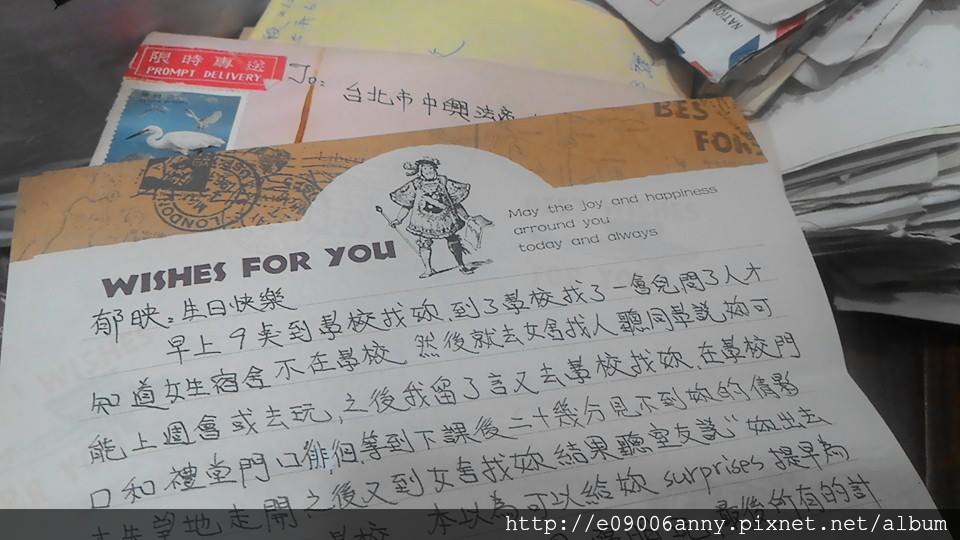 限時專送
PROMPT DELIVERY
To:
台北市中興法商
NATION
BES
FOR
LONDON
May the joy and happiness
arround you
today and always
WISHES FOR YOU
郁映：生日快樂
早上9美到學校找妳,到了學校找了一會兒問了人才
知道女生宿舍不在學校.然後就去女舍找人聽同學說妳可
能上週會或去玩,之後我留了言又去學校找妳,在學校門
口和禮堂門口徘徊,等到下課後二十幾分見不到妳的倩影
失望地走開,之後又到女舍找妳結果聽室友說"妳出去
學校 本以為可以給妳surprises提早為
最後所有的計
http://e09006anny.pixnet.net/album